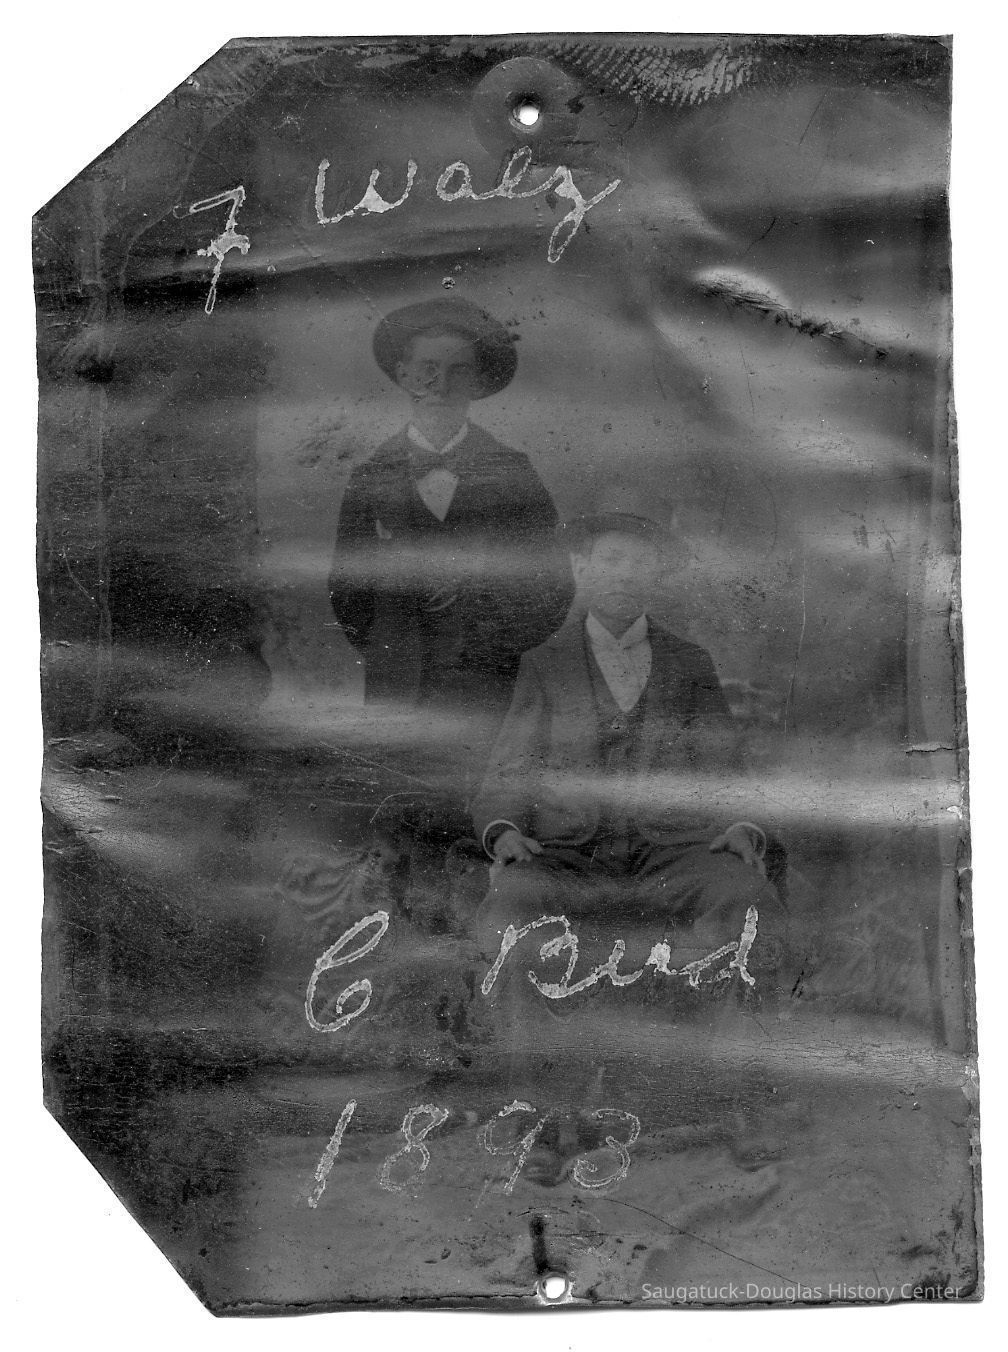 F Walz
C Bird
1893
Saugatuck-Douglas History Center